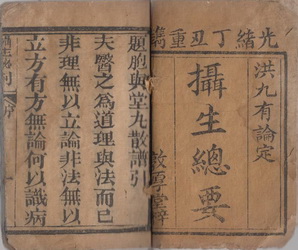 光緒丁丑重鐫
洪九有論定
攝生總要
題胞與堂九散譜引
夫醫之為道理與法而已
非理無以立論非法無以
立方有方無論何以識病